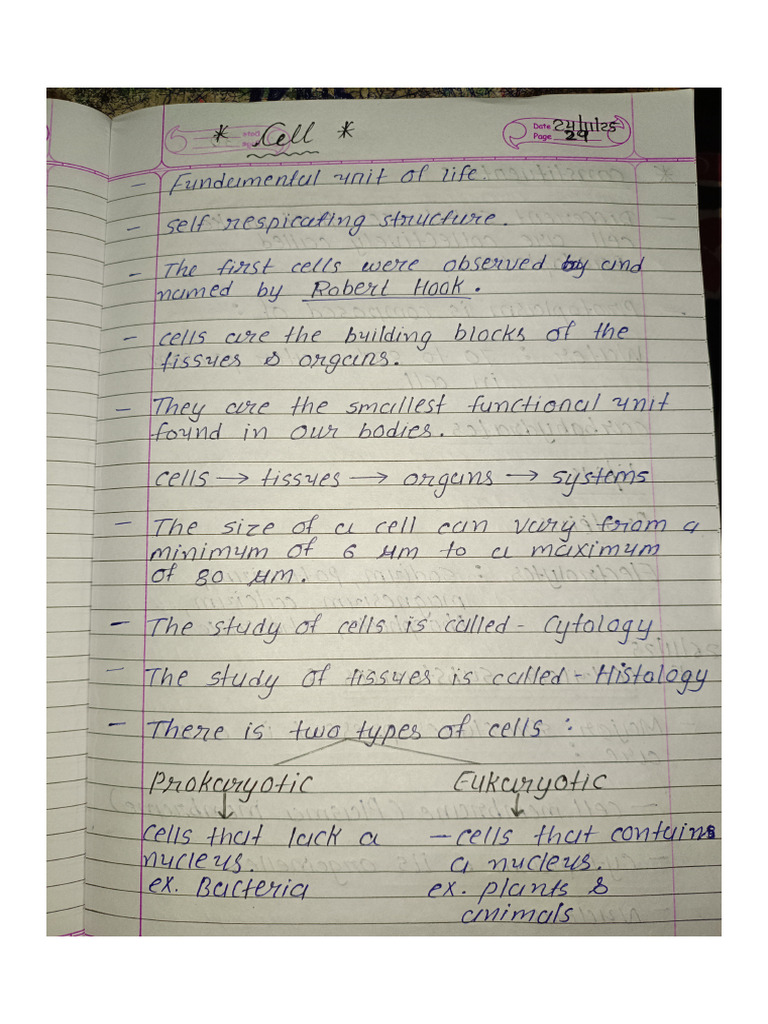 * Cell *
Date 24/11/25
Page 29
- Fundamental unit of life.
- self respicating structure.
- The first cells were observed by and
named by Robert Hook.
- cells are the building blocks of the
tissues & organs.
- They are the smallest functional unit
found in our bodies.
cells → tissues → organs → systems
- The size of a cell can vary from a
minimum of 6 μm to a maximum
of 80 μm.
- The study of cells is called - Cytology.
- The study of tissues is called - Histology
- There is two types of cells :
Prokaryotic Eukaryotic
cells that lack a - cells that contains
nucleus. a nucleus.
ex. Bacteria ex. plants &
animals